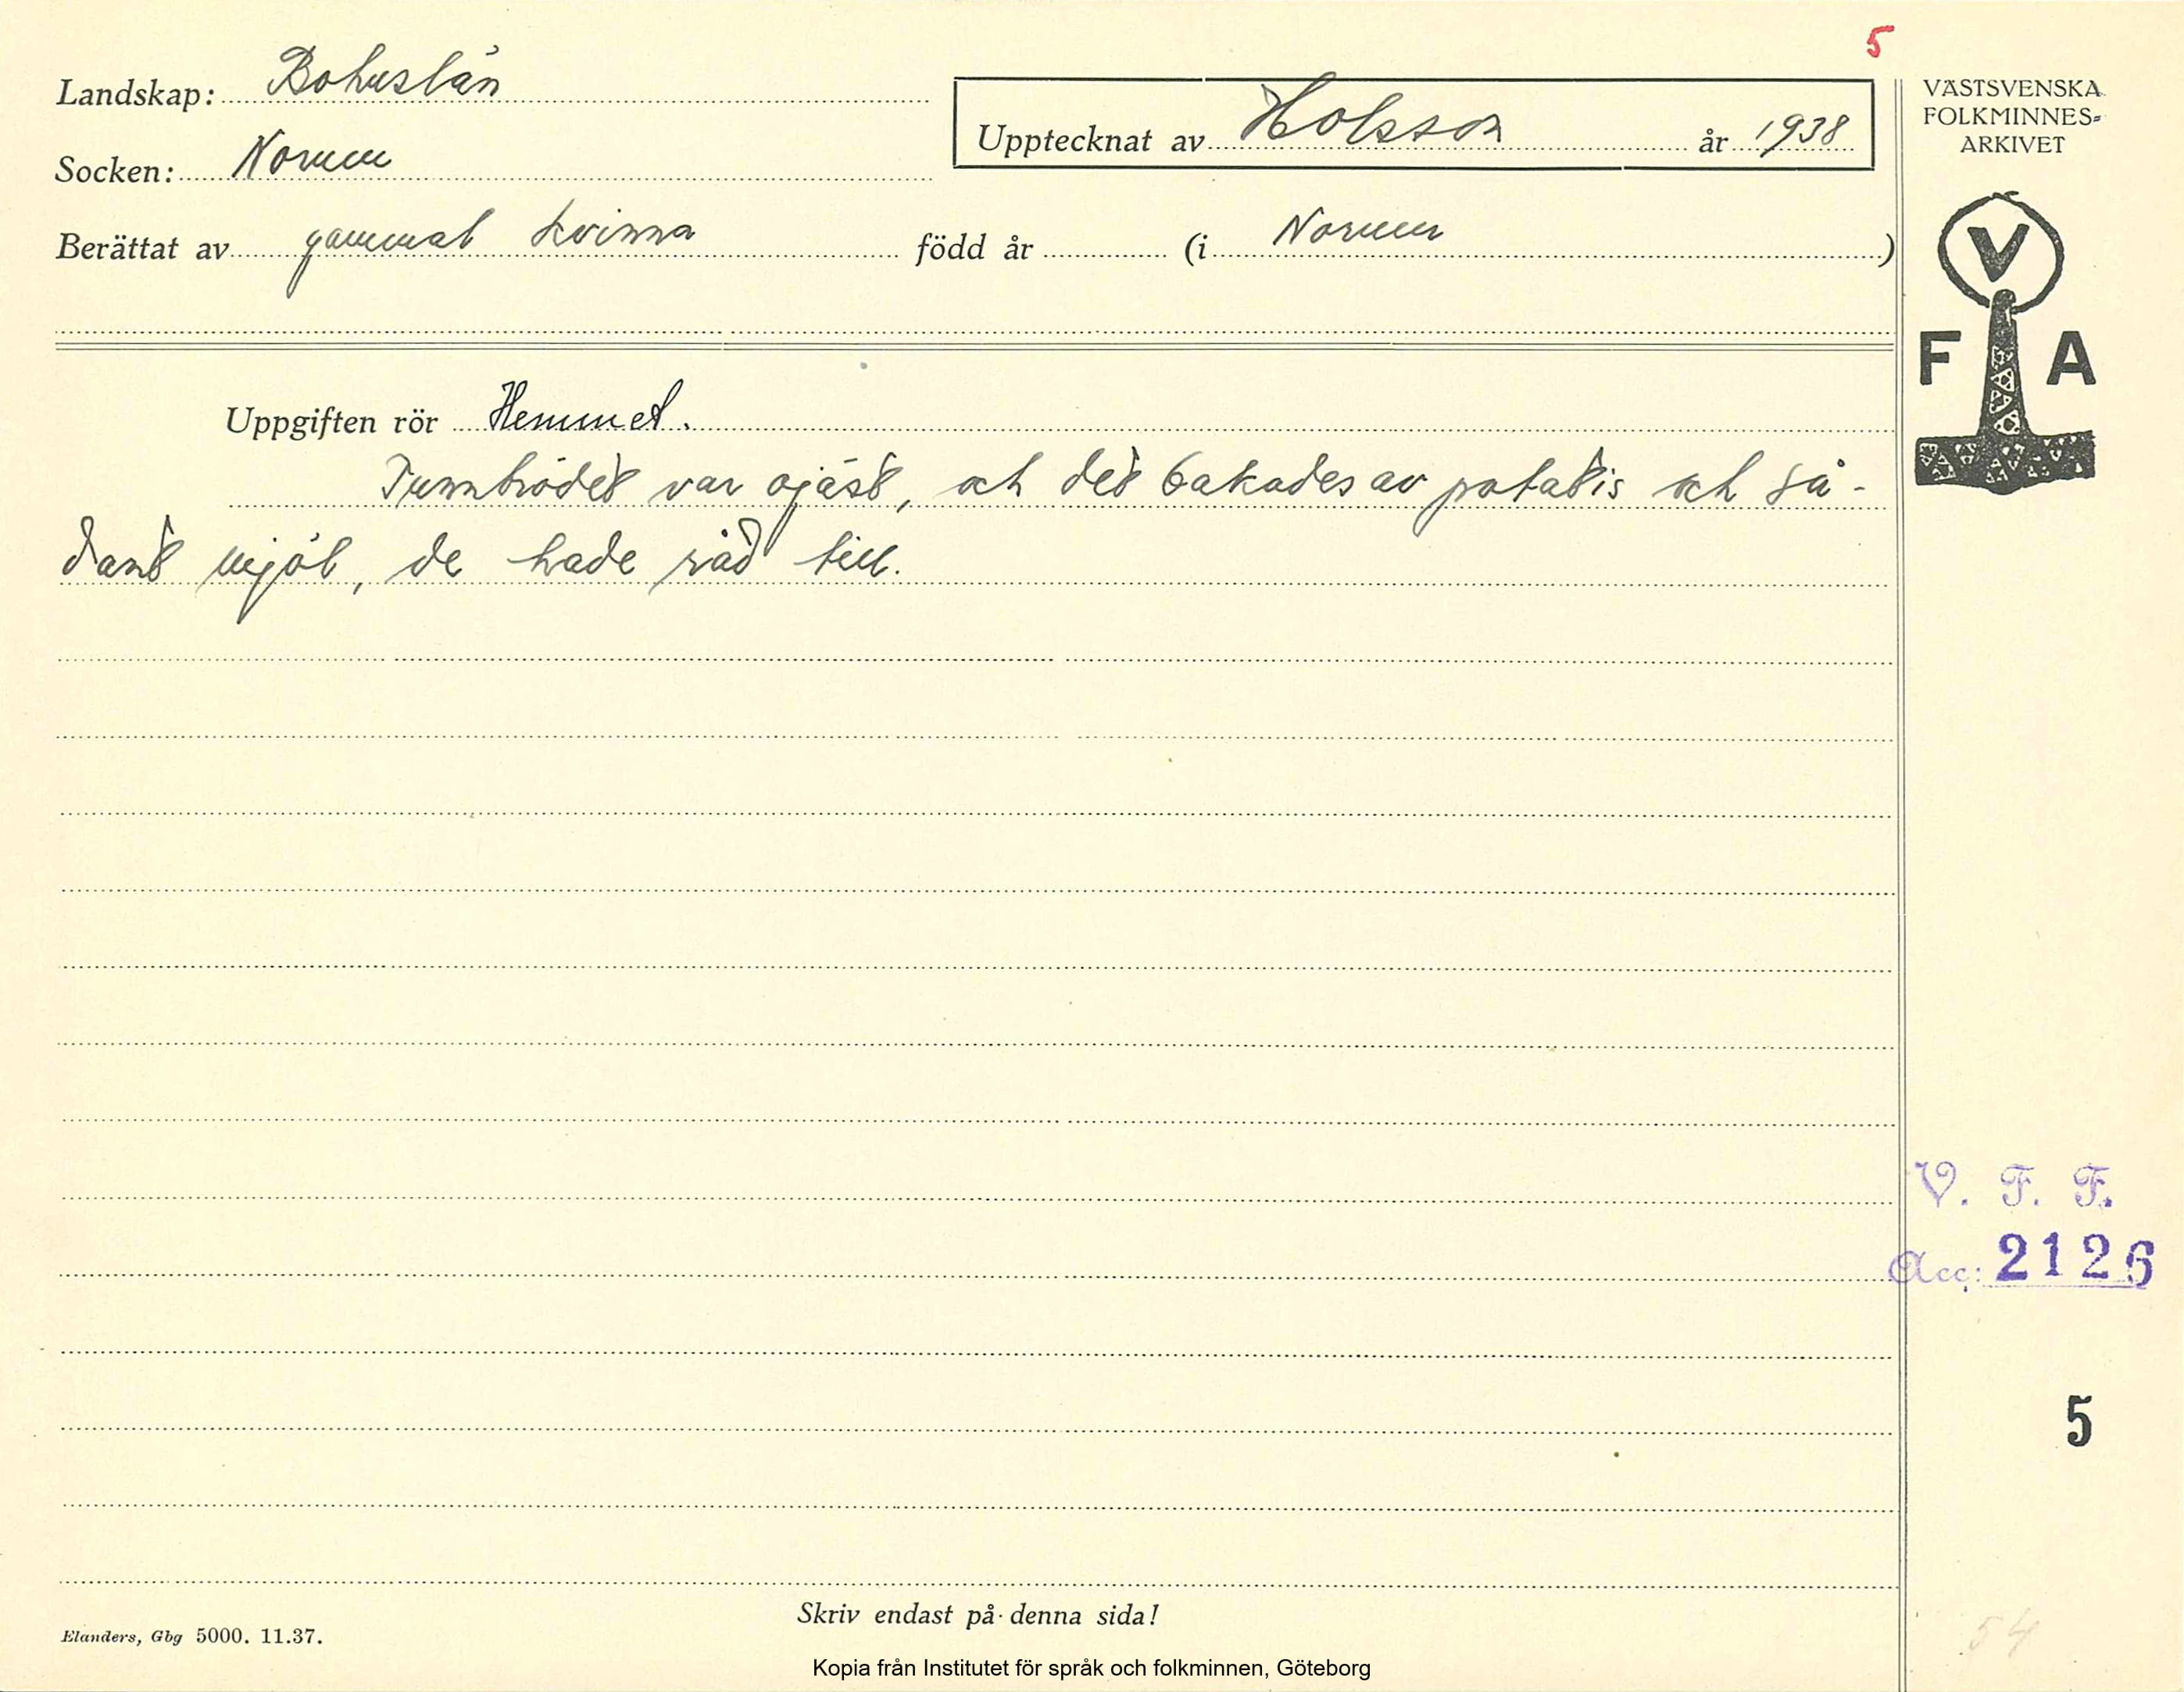 5
Landskap: Bohuslän
Socken: Norum
Upptecknat av Holsson år 1938
Berättat av gammal kvinna född år (i Norum )
VÄSTSVENSKA
FOLKMINNES=
ARKIVET
V
F A
Uppgiften rör Hemmet.
Tunnbrödet var ojäst, och det bakades av potatis och så-
dant mjöl, de hade råd till.
V. F. F.
Acc: 2126
5
Skriv endast på denna sida!
Elanders, Gbg 5000. 11.37.
54
Kopia från Institutet för språk och folkminnen, Göteborg